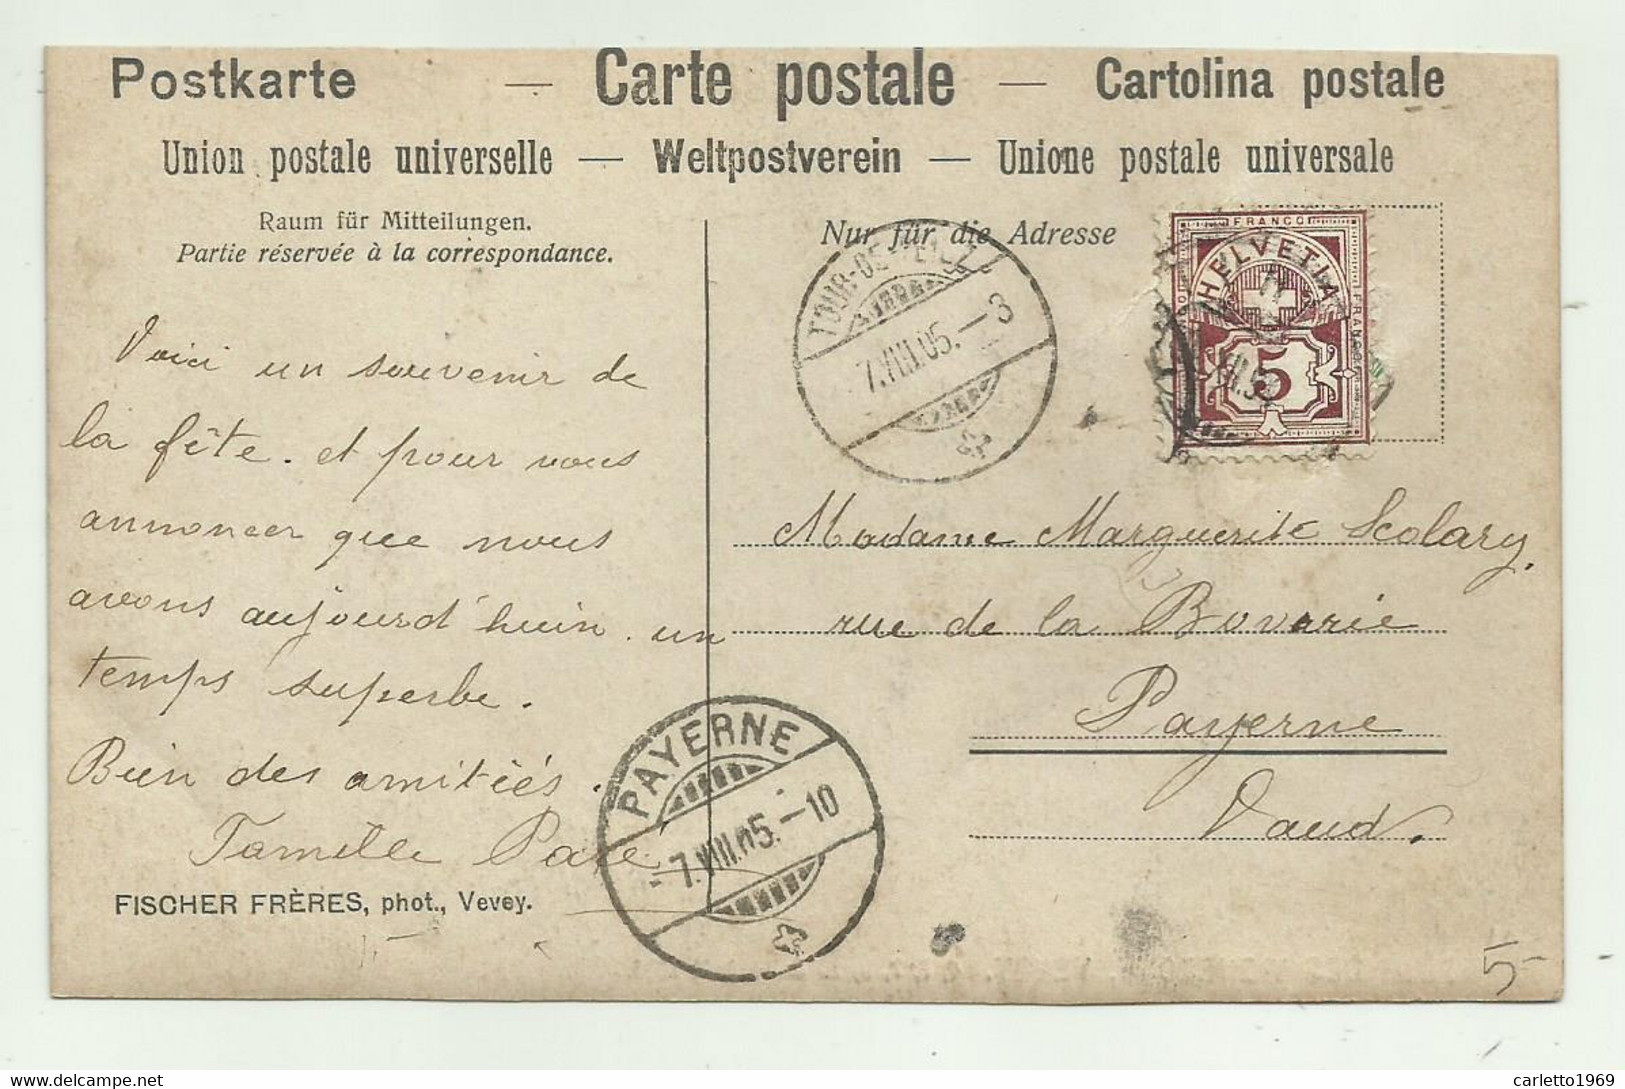 Postkarte — Carte postale — Cartolina postale
Union postale universelle — Weltpostverein — Unione postale universale
Raum für Mitteilungen.
Partie réservée à la correspondance.
Nur für die Adresse
FRANCO
HELVETIA
FRANCO
5
TOUR-DE-PEILZ
7.VIII.05.-3
Voici un souvenir de
la fête. et pour vous
annoncer que nous
avons aujourd'huin un
temps superbe.
Bien des amitiés.
Famille
Madame Marguerite Scolary.
rue de la Boverie
Payerne
Vaud.
PAYERNE
-7.VIII.05.-10
FISCHER FRÈRES, phot., Vevey.
5-
carletto1969